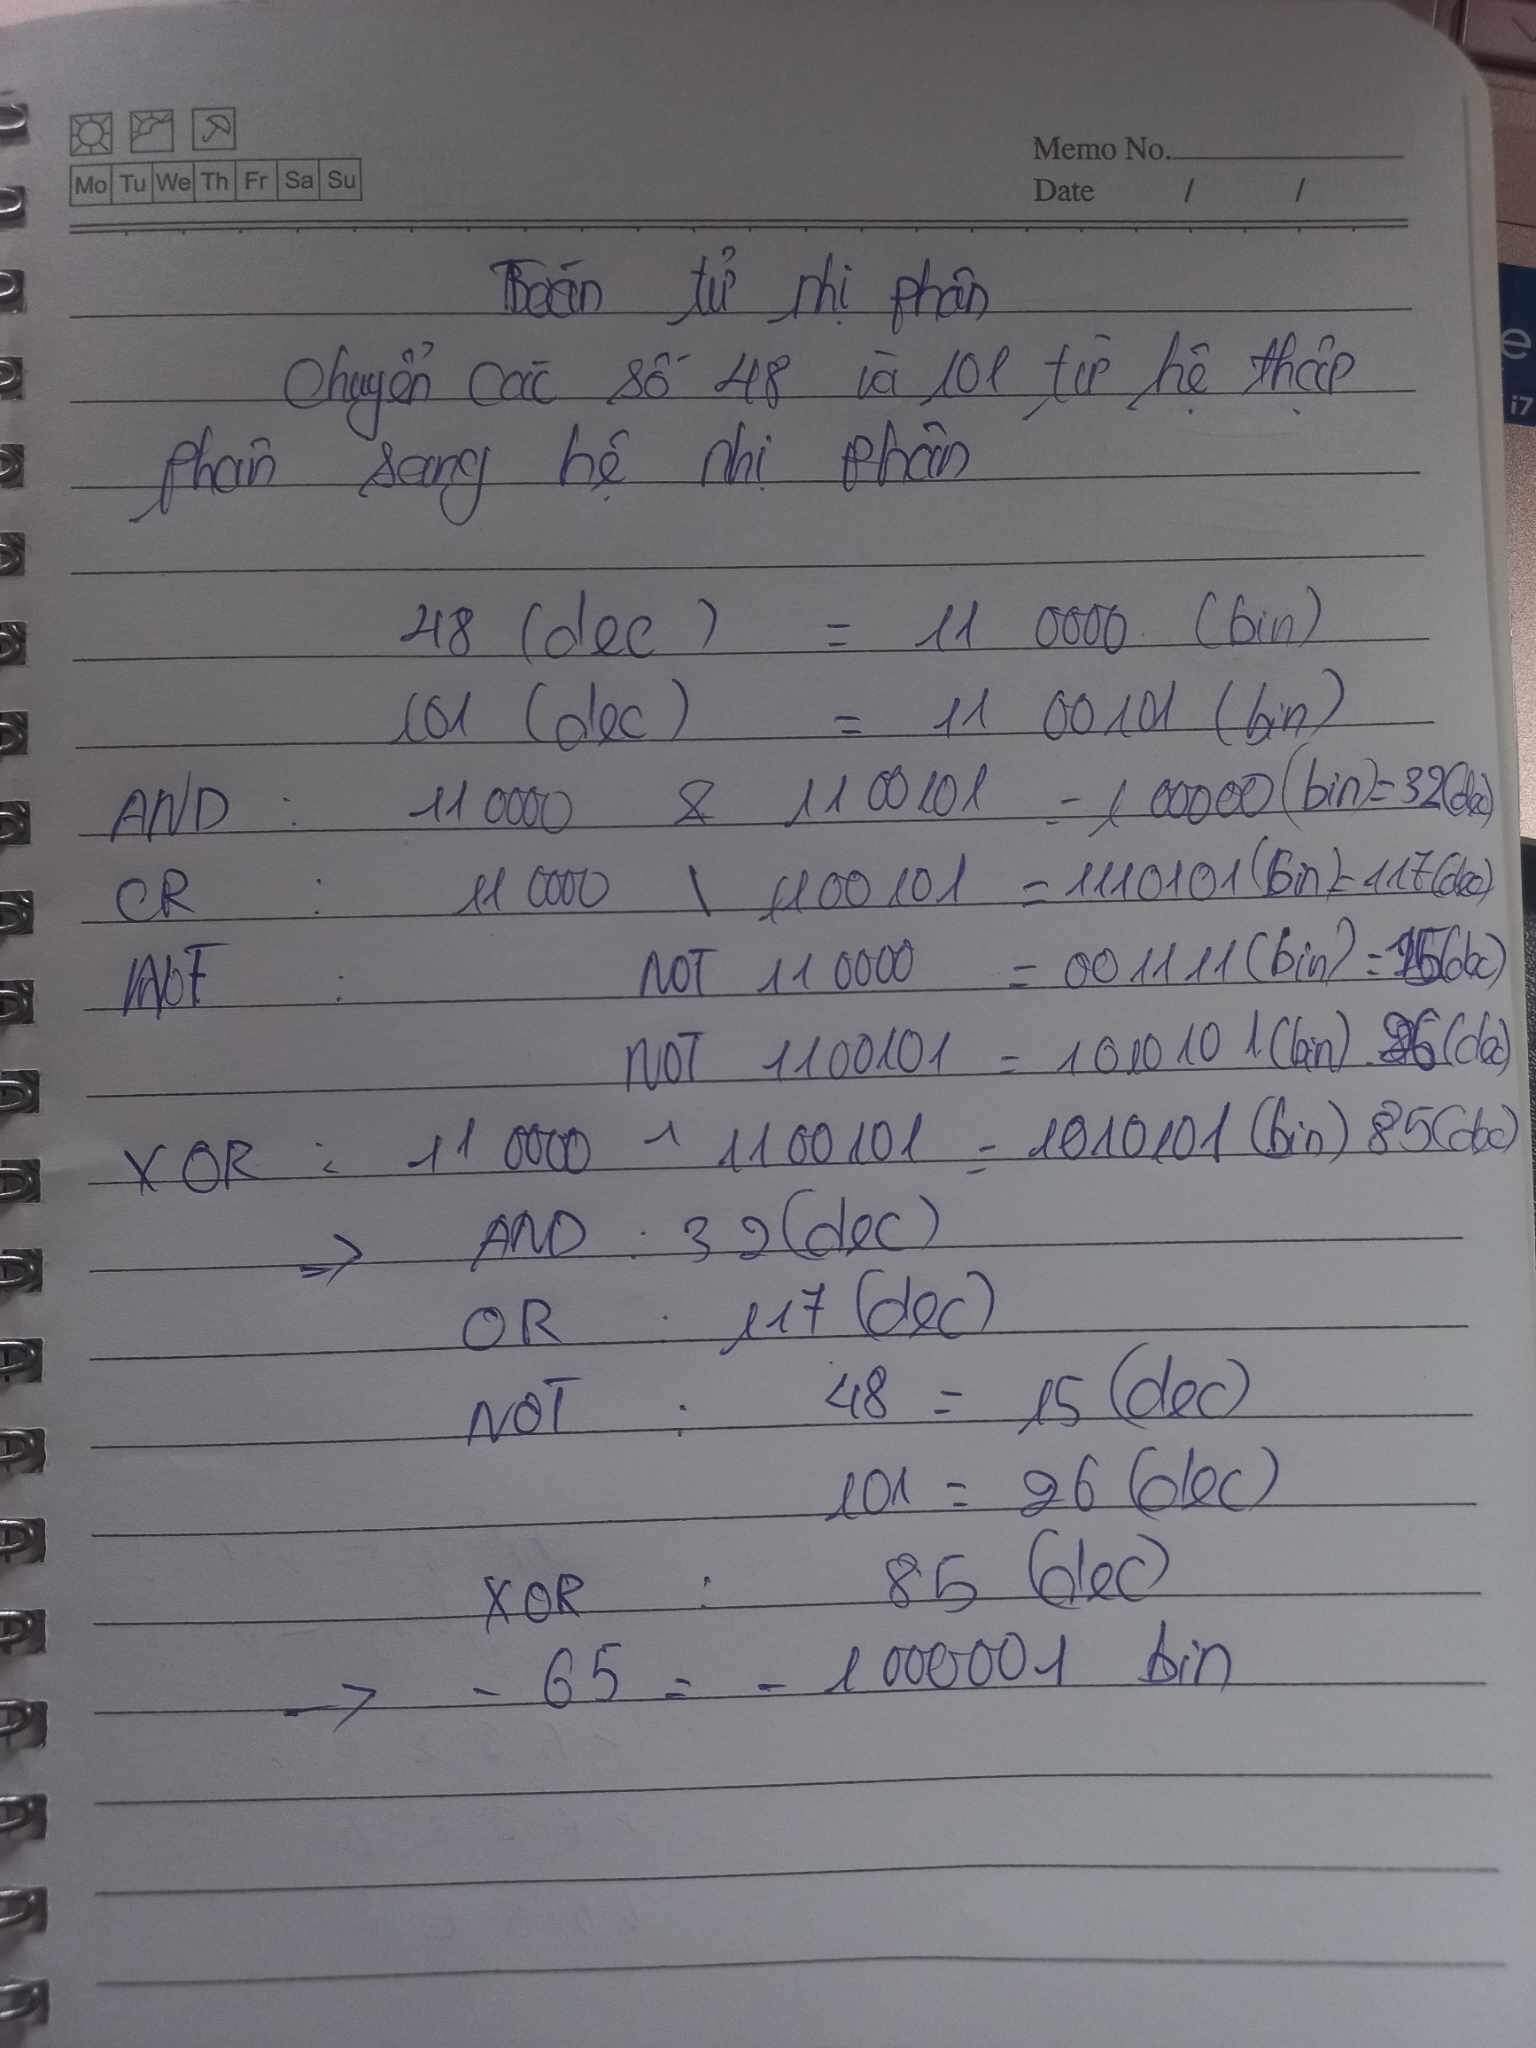 Mo Tu We Th Fr Sa Su
Memo No.
Date / /
Toán tử nhị phân
Chuyển các số 48 và 101 từ hệ thập
phân sang hệ nhị phân
48 (dec) = 11 0000 (bin)
101 (dec) = 11 00101 (bin)
AND : 11 0000 & 11 00101 = 1 00000 (bin) = 32(dec)
OR : 11 0000 \ 1100101 = 1110101 (bin) = 117(dec)
NOT : NOT 11 0000 = 001111 (bin) = 15(dec)
NOT 1100101 = 1010101 (bin) 26(dec)
XOR : 11 0000 ^ 1100101 = 1010101 (bin) 85(dec)
=> AND : 32(dec)
OR : 117 (dec)
NOT : 48 = 15 (dec)
101 = 26 (dec)
XOR : 85 (dec)
-> - 65 = - 1000001 bin
e
i7